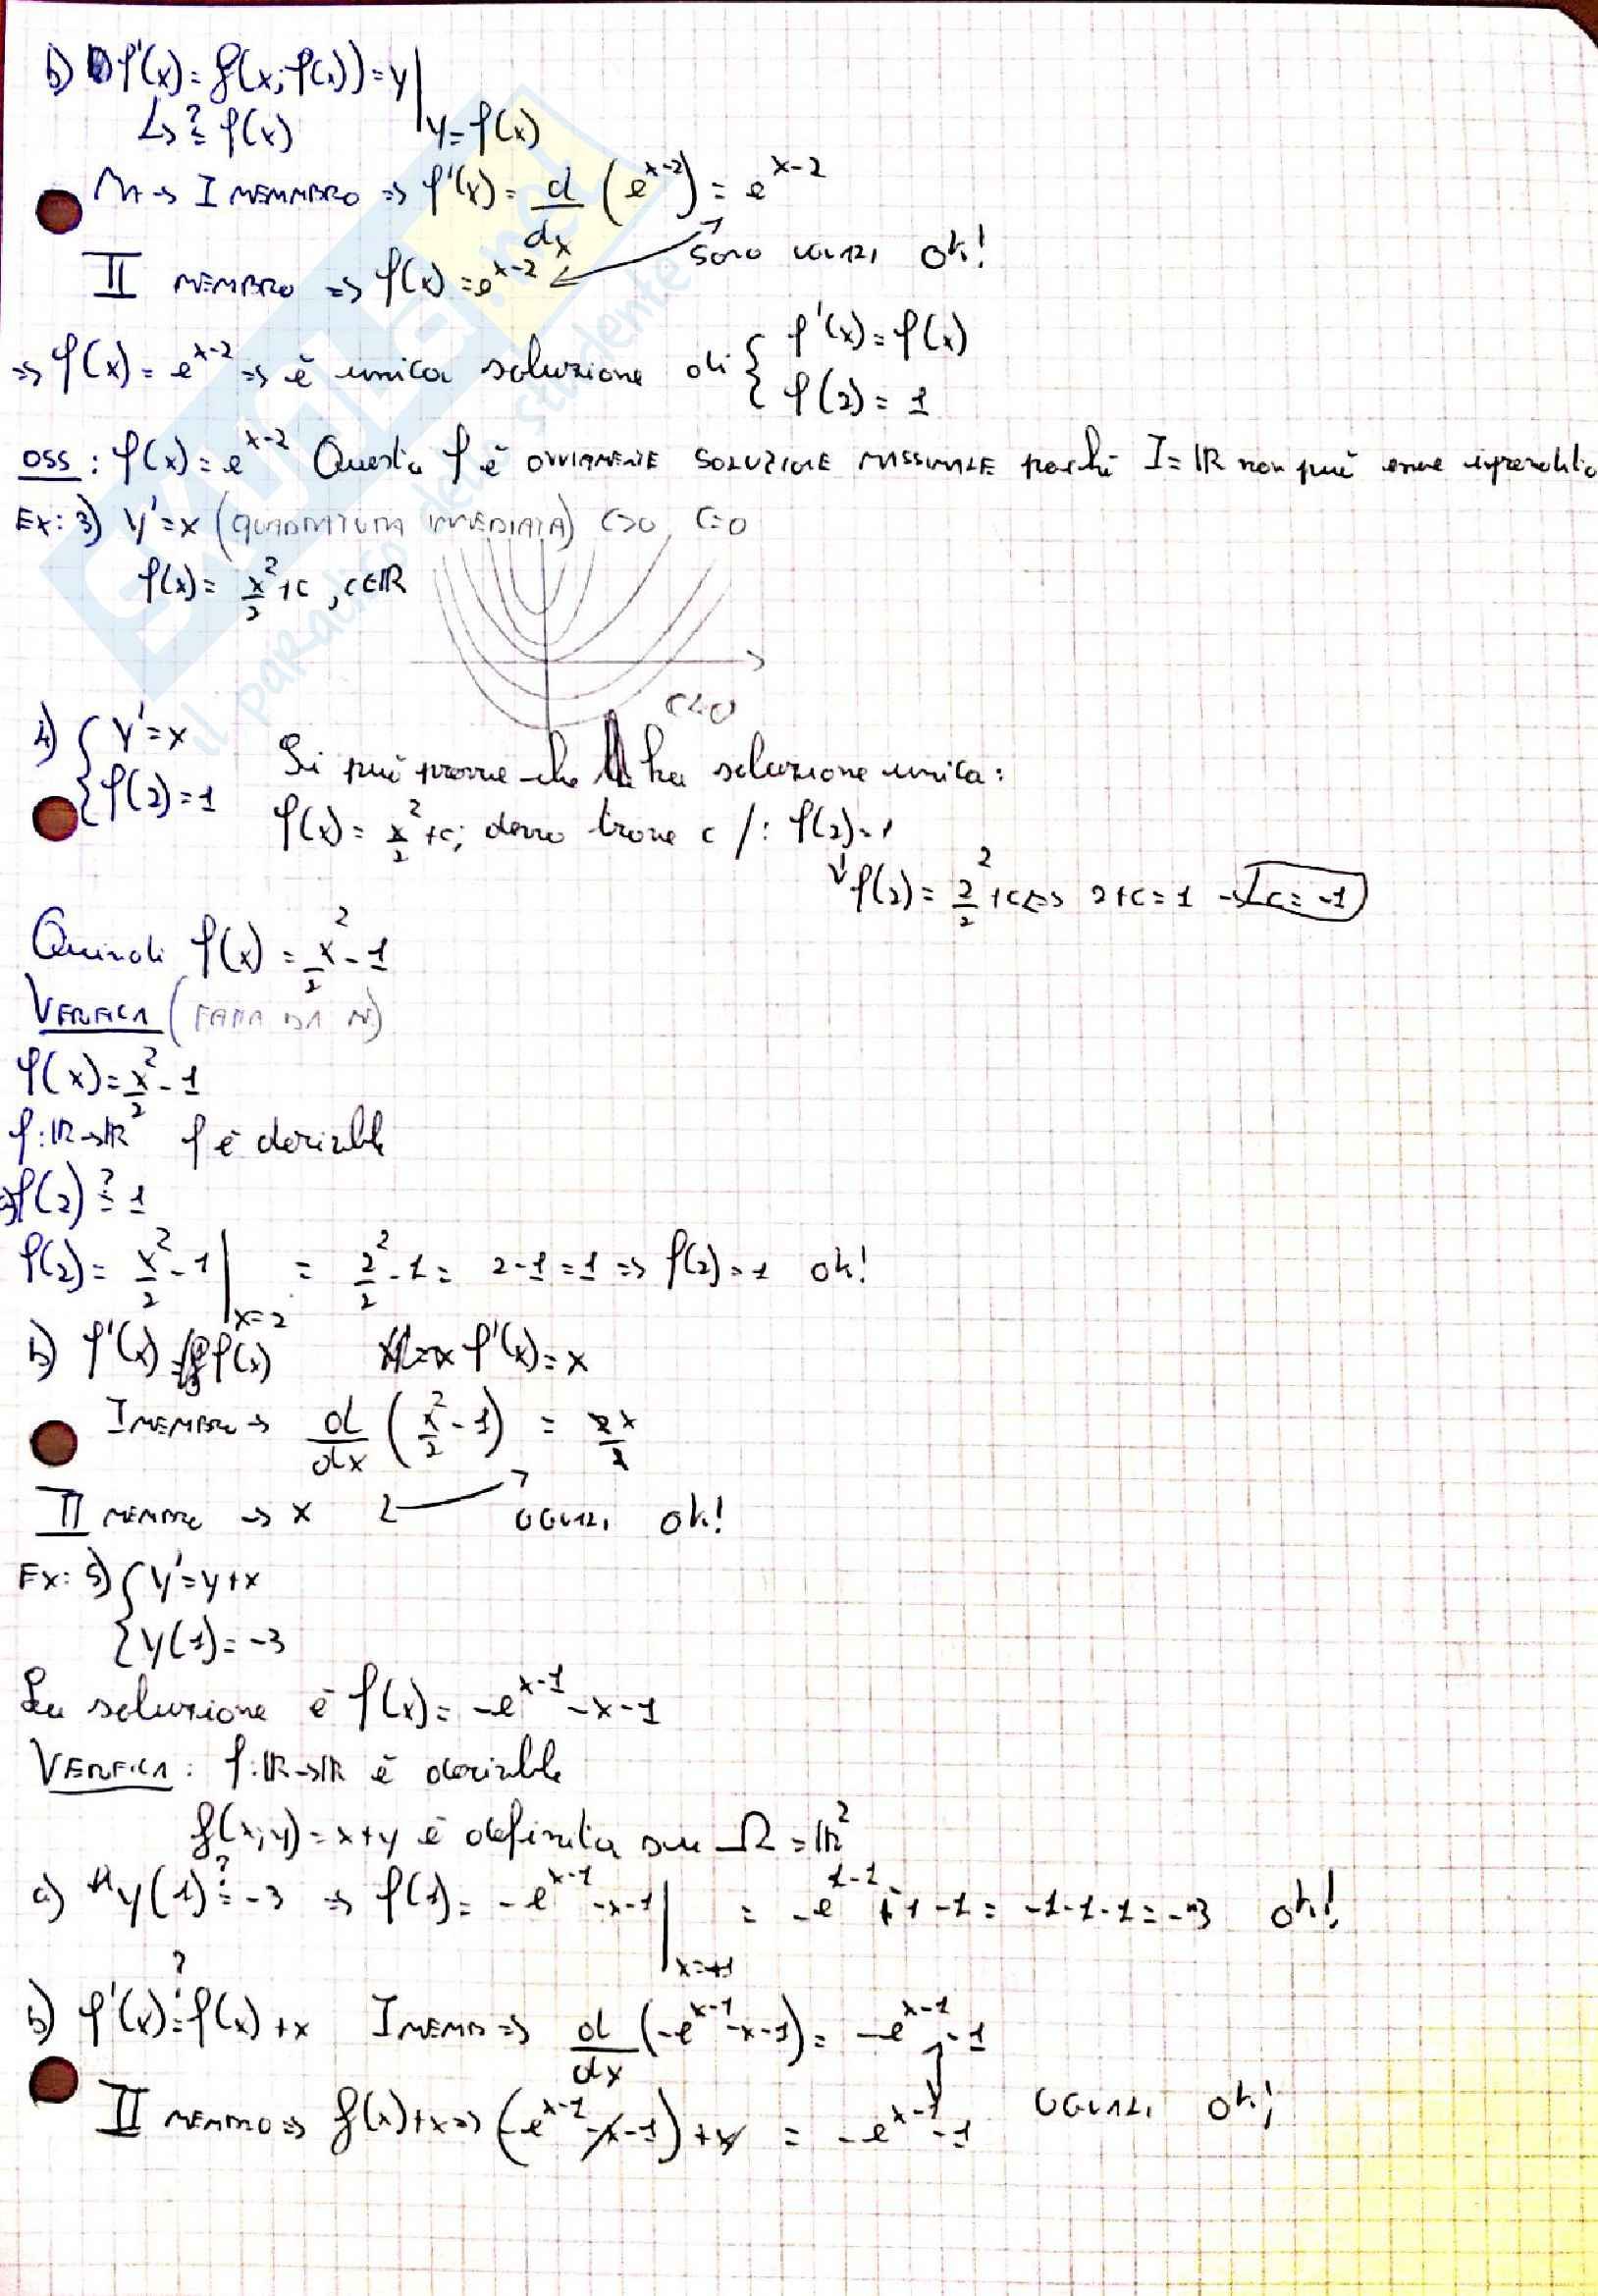 b) φ'(x) = f(x; φ(x)) = y|
↳ ?= φ(x) y=φ(x)
→ I MEMMBRO => φ'(x) = d/dx (e^(x-2)) = e^(x-2)
SONO UGUALI OK!
II MEMBRO => φ(x) = e^(x-2)
=> φ(x) = e^(x-2) => è unica soluzione di { φ'(x) = φ(x)
φ(2) = 1
OSS: φ(x) = e^(x-2) Questa φ è OVVIAMENTE SOLUZIONE MASSIMALE perché I = ℝ non può essere
Ex: 3) y' = x (QUADRATURA IMMEDIATA) C>0 C=0
φ(x) = x²/2 + c, c∈ℝ
C<0
4) { y' = x
φ(2) = 1
Si può provare che ha soluzione unica:
φ(x) = x²/2 + c; devo trovare c /: φ(2) = 1
↓ φ(2) = 2²/2 + c <=> 2+c = 1 → c = -1
Quindi φ(x) = x²/2 - 1
VERIFICA (FATTA DA ME)
φ(x) = x²/2 - 1
φ: ℝ→ℝ φ è derivabile
a) φ(2) ?= 1
φ(2) = x²/2 - 1 |x=2 = 2²/2 - 1 = 2-1 = 1 => φ(2) = 1 ok!
b) φ'(x) = φ(x) φ'(x) = x
I MEMBRO → d/dx (x²/2 - 1) = 2x/2
II MEMBRO → x UGUALI OK!
Ex: 5) { y' = y+x
y(1) = -3
La soluzione è φ(x) = -e^(x-1) - x - 1
VERIFICA: φ: ℝ→ℝ è derivabile
f(x;y) = x+y è definita su Ω = ℝ²
a) y(1) ?= -3 => φ(1) = -e^(x-1) - x - 1 |x=1 = -e^(1-1) - 1 - 1 = -1-1-1 = -3 ok!
b) φ'(x) ?= φ(x) + x I MEMB => d/dx (-e^(x-1) - x - 1) = -e^(x-1) - 1
UGUALI OK!
II MEMBRO => f(x)+x => (-e^(x-1) - x - 1) + x = -e^(x-1) - 1
skuola.net
il paradiso dello studente